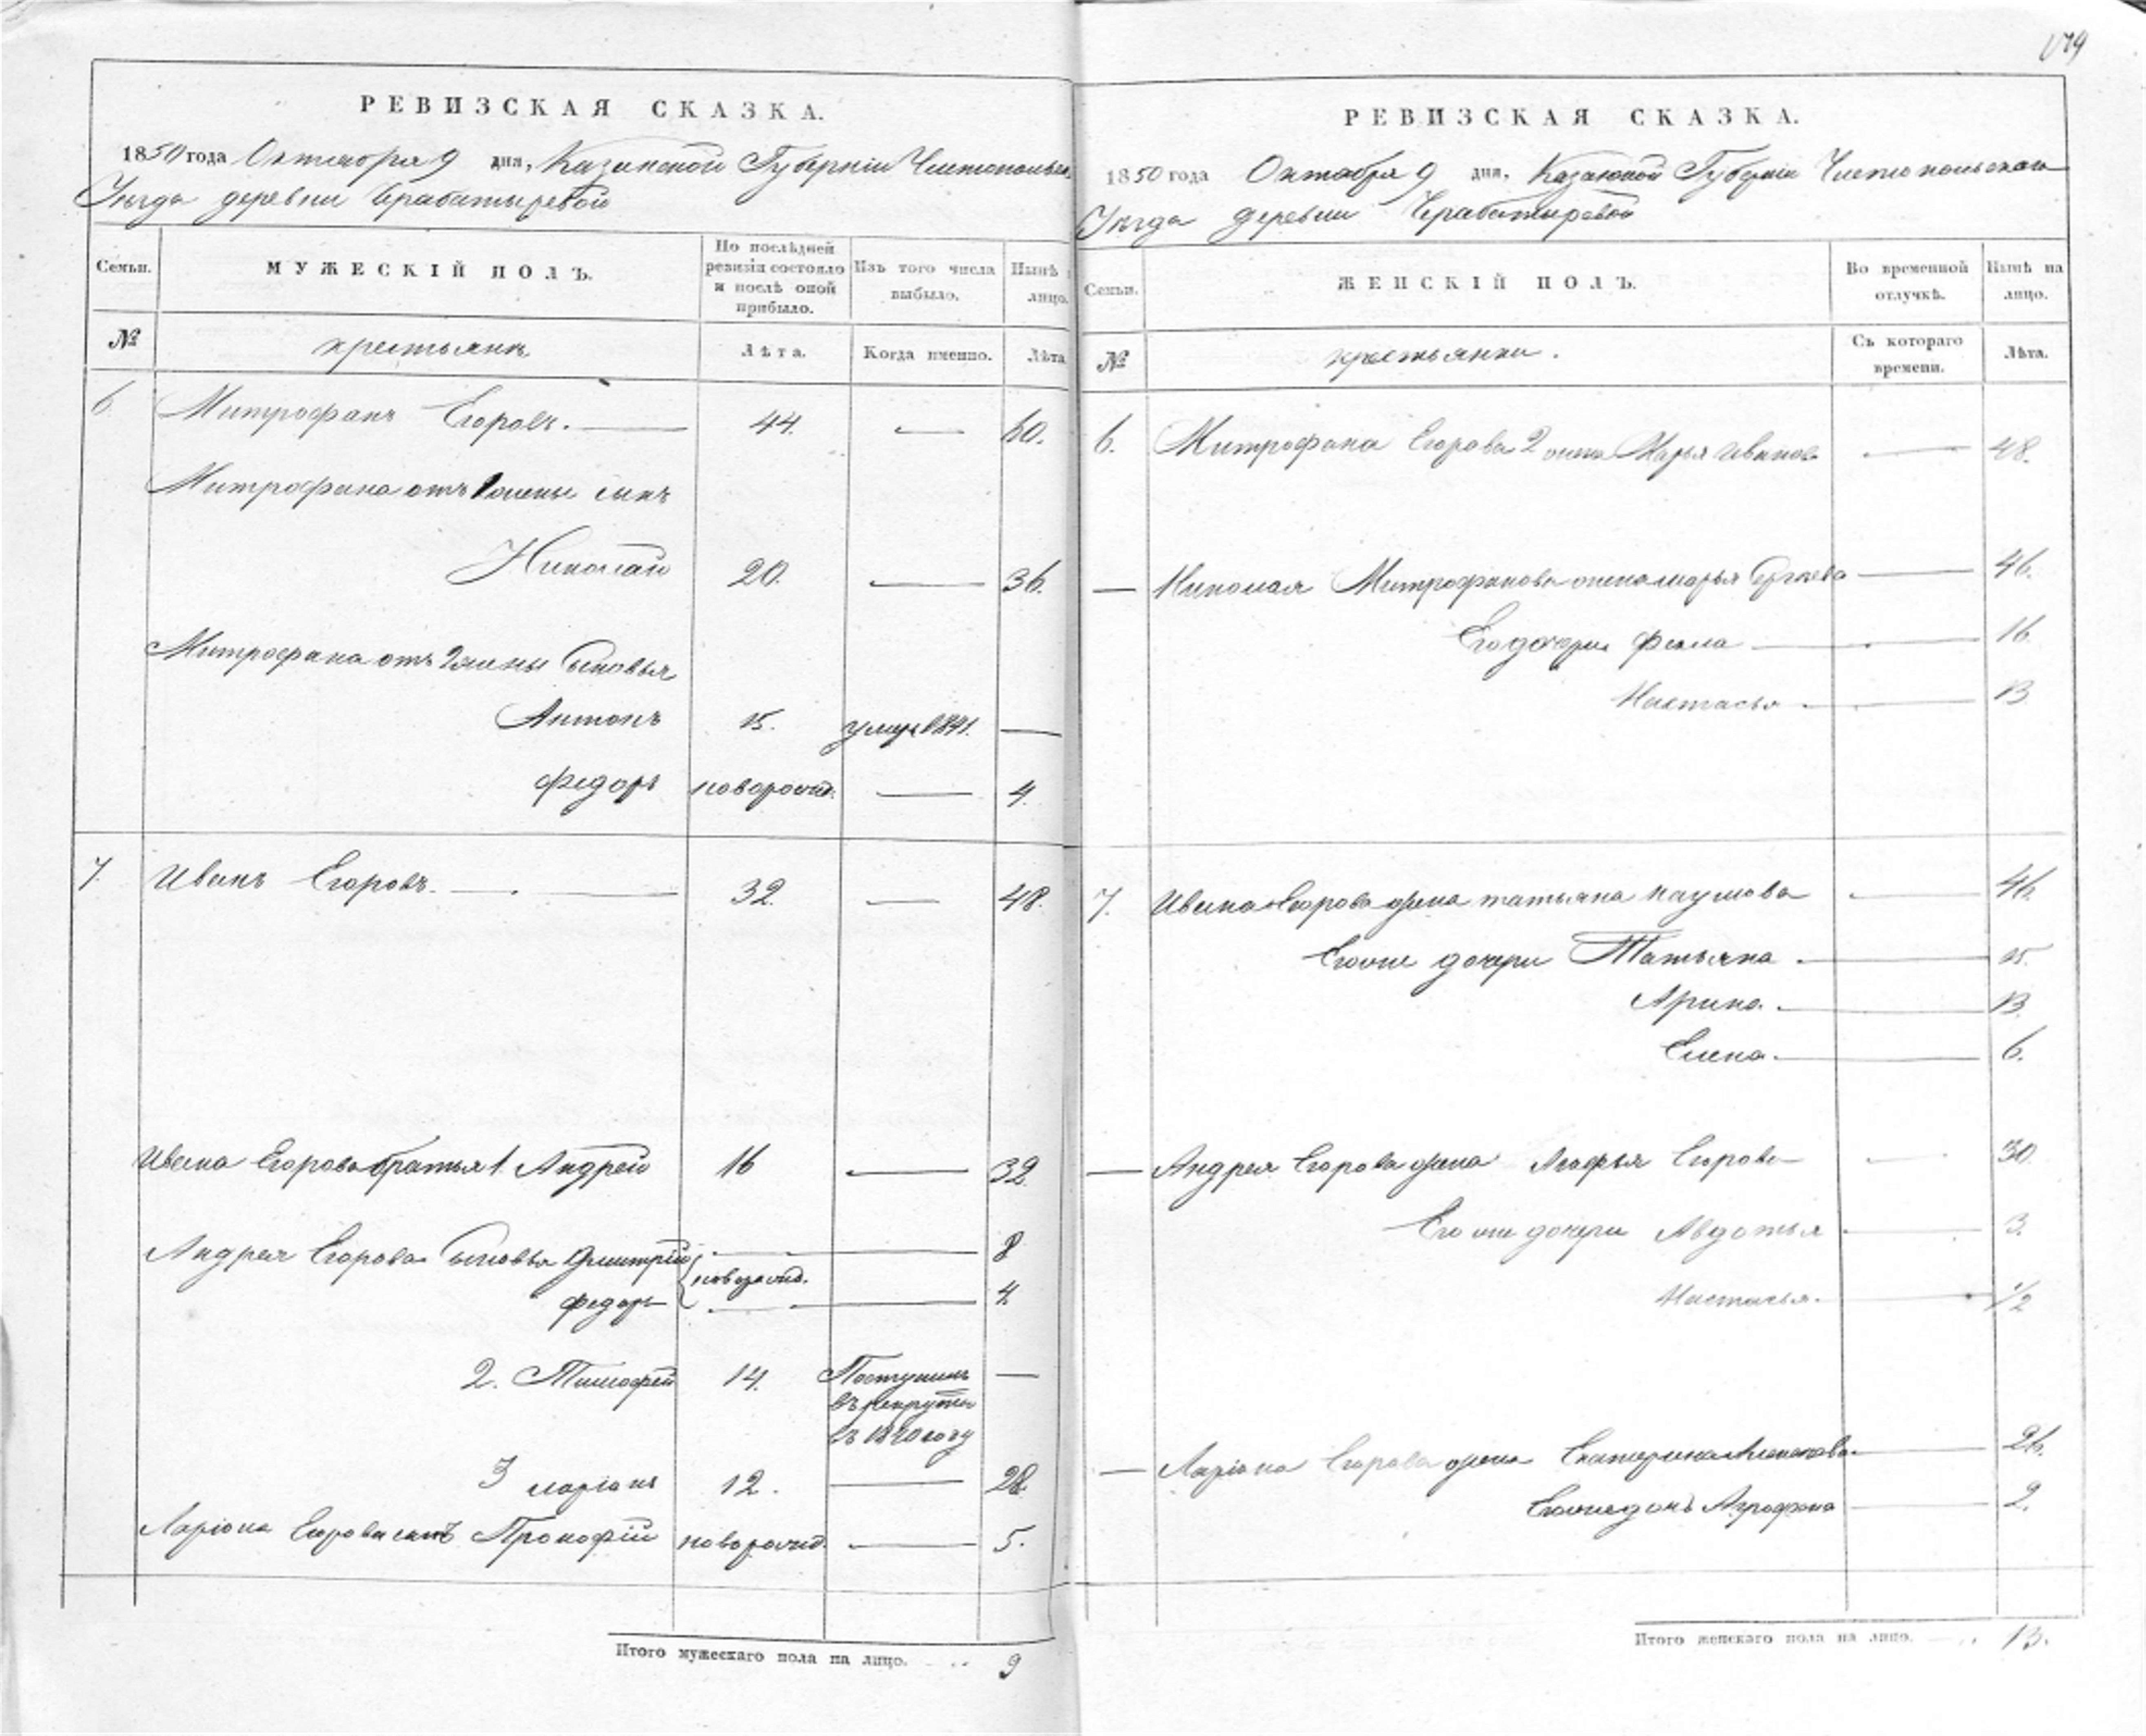 РЕВИЗСКАЯ СКАЗКА.
1850 года Октября 9 дня, Казанской Губерніи Чистопольск.
Уезда деревни Черабатыревой
Семьи.
МУЖЕСКІЙ ПОЛЪ.
По послѣдней ревизіи состояло и послѣ оной прибыло.
Изъ того числа выбыло.
Нынѣ лицо.
№
крестьянъ
Лѣта.
Когда именно.
Лѣта
6. Митрофанъ Егоровъ. — 44. — 60.
Митрофана отъ 1 жены сынъ
Николай 20. — 36.
Митрофана отъ 2 жены сыновья
Антонъ 15. умре 1841. —
Федоръ новорожд. — 4.
7. Иванъ Егоровъ. — 32. — 48.
Ивана Егорова братья 1. Андрей 16 — 32.
Андрея Егорова сыновья Дмитрій — 8
новорожд.
Федоръ — 4.
2. Тимофей 14. Поступилъ —
въ рекруты
въ 1840 году
3 Ларіонъ 12. — 28.
Ларіона Егорова сынъ Прокофій новорожд. — 5.
Итого мужескаго пола на лицо. 9
РЕВИЗСКАЯ СКАЗКА.
1850 года Октября 9 дня, Казанской Губерніи Чистопольскаго
Уезда деревни Черабатыревой
Семьи.
ЖЕНСКІЙ ПОЛЪ.
Во временной отлучкѣ.
Нынѣ на лицо.
№
крестьянки.
Съ котораго времени.
Лѣта.
6. Митрофана Егорова 2 жена Марья Иванова — 48.
— Николая Митрофанова жена Марья — 46.
Его дочери Фекла — 16
Настасья — 13
7. Ивана Егорова жена Татьяна Наумова — 46.
Егоже дочери Татьяна — 15.
Арина. — 13.
Елена — 6.
— Андрея Егорова жена Агафья Егорова — 30
Егоже дочери Авдотья — 3.
Настасья. — 1/2
— Ларіона Егорова жена Екатерина — 26.
Егоже дочь Аграфена — 2.
Итого женскаго пола на лицо. 13.